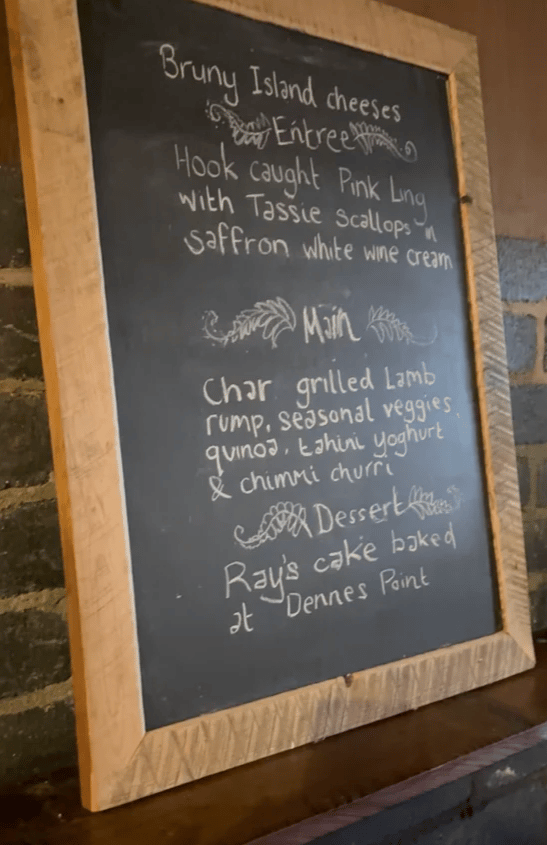 Bruny Island cheeses
Entree
Hook caught Pink Ling
with Tassie scallops in
saffron white wine cream
Main
Char grilled Lamb
rump, seasonal veggies,
quinoa, tahini yoghurt
& chimmi churri
Dessert
Ray's cake baked
at Dennes Point